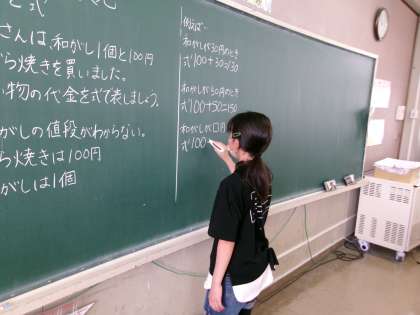 と式
さんは、和がし1個と100円
ら焼きを買いました。
い物の代金を式で表しましょう。
がしの値段がわからない。
ら焼きは100円
がしは1個
例えば…
和がしが30円のとき
式100+30=130
和がしが50円のとき
式100+50=150
和がしが□円
式100